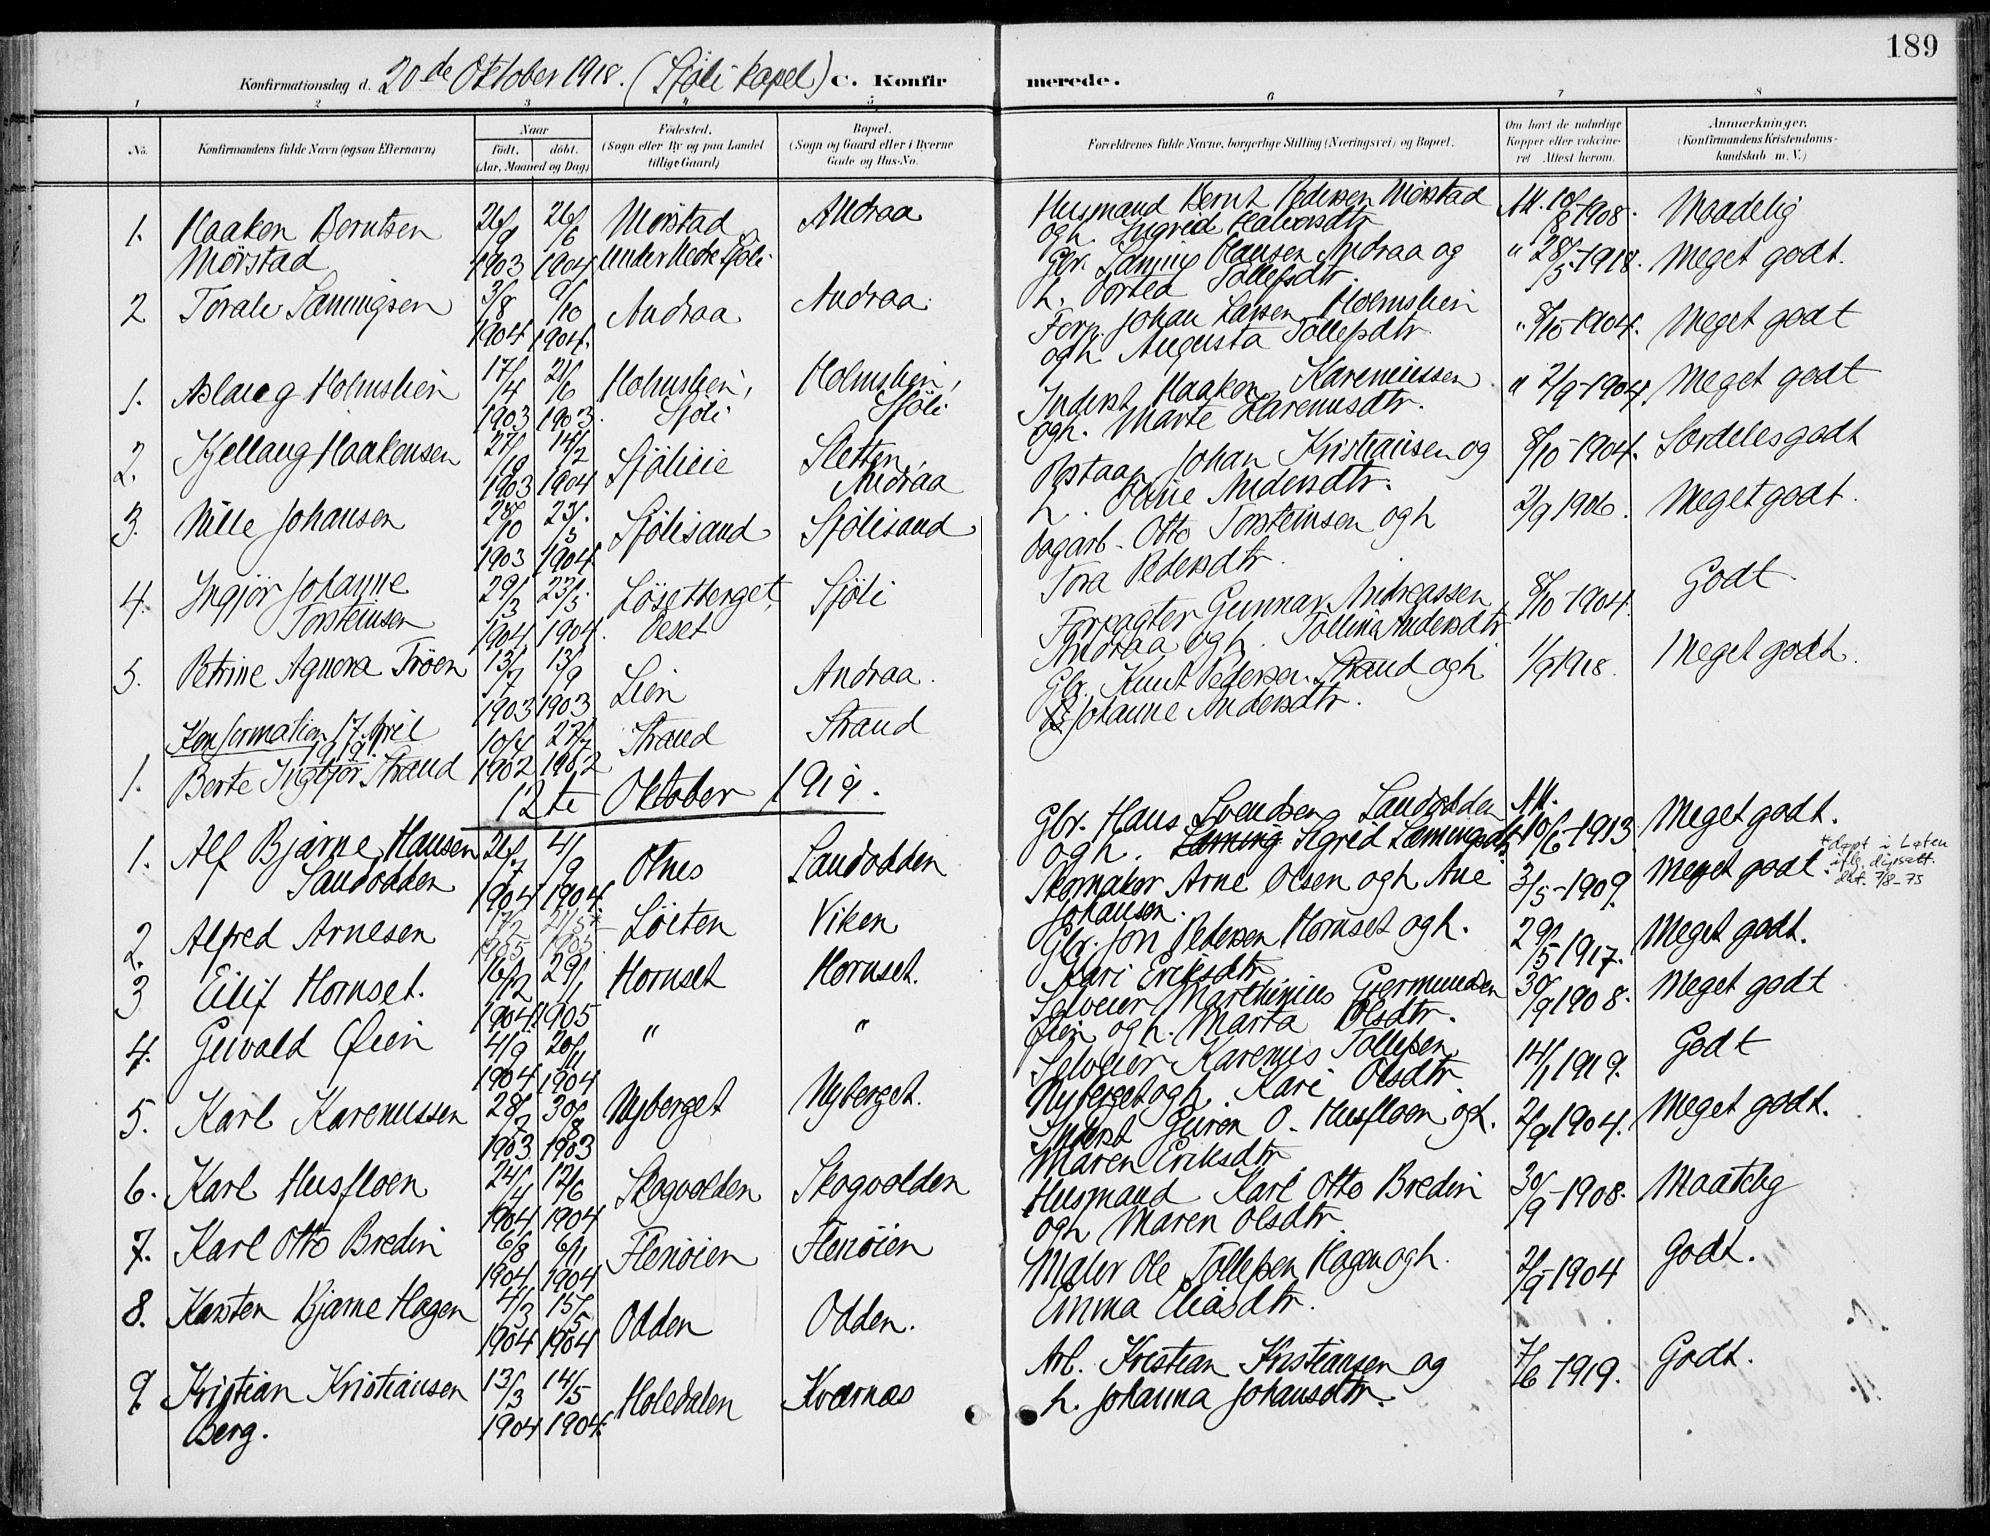 189
Konfirmationsdag d. 20de Oktober 1918. (Sjøli kapel) C. Konfirmerede.
1 2 3 4 5 6 7 8
No. Konfirmandens fulde Navn (ogsaa Efternavn)
Naar
født. døbt.
(Aar, Maaned og Dag)
Fødested.
(Sogn eller By og paa Landet
tillige Gaard)
Bopæl.
(Sogn og Gaard eller i Byerne
Gade og Hus-No.
Forældrenes fulde Navne, borgerlige Stilling (Næringsvei) og Bopæl.
Om havt de naturlige
Kopper eller vakcine-
ret Attest herom.
Anmærkninger.
(Konfirmandens Kristendoms-
kundskab m. V.)
1. Haakon Berntsen Mørstad 26/9 1903 26/6 1904 Mørstad under Nedre Sjøli Andraa
Husmand Bernt Pedersen Mørstad og h. Ingrid Halvorsdtr. Att. 10/8 1908. Maadelig
2 Torale Sæmingsen 3/8 1904 9/10 1904. Andraa Andraa.
Gbr. Sæming Olausen Andraa og h. Tollefsdtr. " 28/5-1918. Meget godt.
1. Aslaug Holmslien 17/4 1903 21/6 1903. Holmslien, Sjøli Holmslien, Sjøli
Forp. Johan Larsen Holmslien og h. Augusta Tollefsdtr. " 8/10-1904. Meget godt
2. Kjellaug Haakensen 27/10 1903 14/2 1904 Sjølieie Sletten, Andraa
Inderst Haaken Karenussen og h. Marte Karenusdtr. " 2/9-1904 Meget godt
3. Nille Johansen 28/10 1903 23/5 1904. Sjølisand Sjølisand
Johan Kristiansen og h. Oline Andersdtr. 8/10-1904. Særdeles godt
4. Ingjør Johanne Torsteinsen 29/3 1904 23/5 1904. Løsetberget, Øeset Sjøli
Dagarb. Otto Torsteinsen og h Tora Pedersdtr. 2/9 1906. Meget godt.
5. Petrine Agnora Trøen 13/7 1903 13/9 1903 Lien Andraa.
Forpagter Gunnar Andreassen Andraa og h. Tollina Andersdtr 8/10-1904. Godt
Konfirmation 17 April 1919.
1. Berte Ingbjør Strand 10/4 1902 27/7 1902 Strand Strand
Gbr. Knut Pedersen Strand og h Johanne Andersdtr. 1/9 1918. Meget godt.
12te Oktober 1919.
1. Alf Bjarne Hansen Sandodden 26/7 1904 4/9 1904. Otnes Sandodden
Gbr. Hans Svendsen Sandodden og h. Sæming Sigrid Sæmingsdtr. Att. 10/6-1913 Meget godt.
2. Alfred Arnesen 17/2 1905 21/5* 1905. Løiten Viken
Skomaker Arne Olsen og h Ane Johansen. 3/5-1909. Meget godt.
* døpt i Løten iflg. dåpsatt. dat. 7/8-75
3 Eilif Hornset. 16/12 1904 29/1 1905 Hornset Hornset.
Gbr. Jon Pedersen Hornset og h. Kari Eriksdtr 29/5 1917. Meget godt.
4. Geivald Øien 4/9 1904 20/11 1904 " "
Selveier Marthinius Øien og h. Marta Olsdtr. 30/9 1908. Meget godt
5. Karl Karenussen 28/7 1903 30/8 1903 Nyberget Nyberget.
Selveier Karenus Tollefsen Nyberget og h. Kari Olsdtr 14/1 1919. Godt
6. Karl Husfloen 24/4 1904. 12/6 1904 Skogvolden Skogvolden
Inderst Guren O. Husfloen og h. Maren Eriksdtr 2/9 1904. Meget godt.
7. Karl Otto Bredin 6/8 1904. 6/11 1904 Flenøien Flenøien
Husmand Karl Otto Bredin og h Maren Olsdtr. 30/9-1908. Maatelig
8. Karsten Bjarne Hagen 4/3 1904 15/5 1904 Odden Odden.
Maler Ole Tollefsen Hagen og h. Emma Eliasdtr. 2/9-1904 Godt.
9 Kristian Kristiansen Berg. 13/3 1904 14/5 1904. Holedalen Kværnæs
Arb. Kristian Kristiansen og h. Johanna Johansdtr. 7/6-1919. Godt.